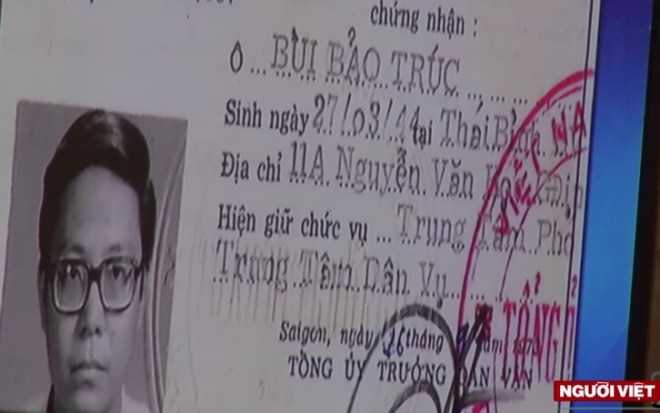 chứng nhận :
Ô ... BÙI BẢO TRÚC
Sinh ngày 27/03/44 tại Thái Bình
Địa chỉ 11A Nguyễn Văn
Hiện giữ chức vụ ... Trung Tâm Phó
Trung Tâm Dân Vụ
Saigon, ngày 26 tháng
TỔNG ỦY TRƯỞNG DÂN VẬN
TỔNG
NGƯỜI VIỆT